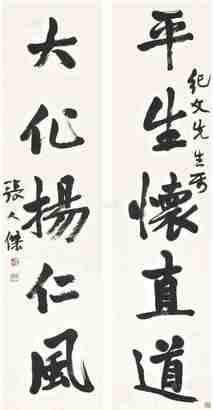 平生懷直道
紀文先生屬
大化揚仁風
張人傑